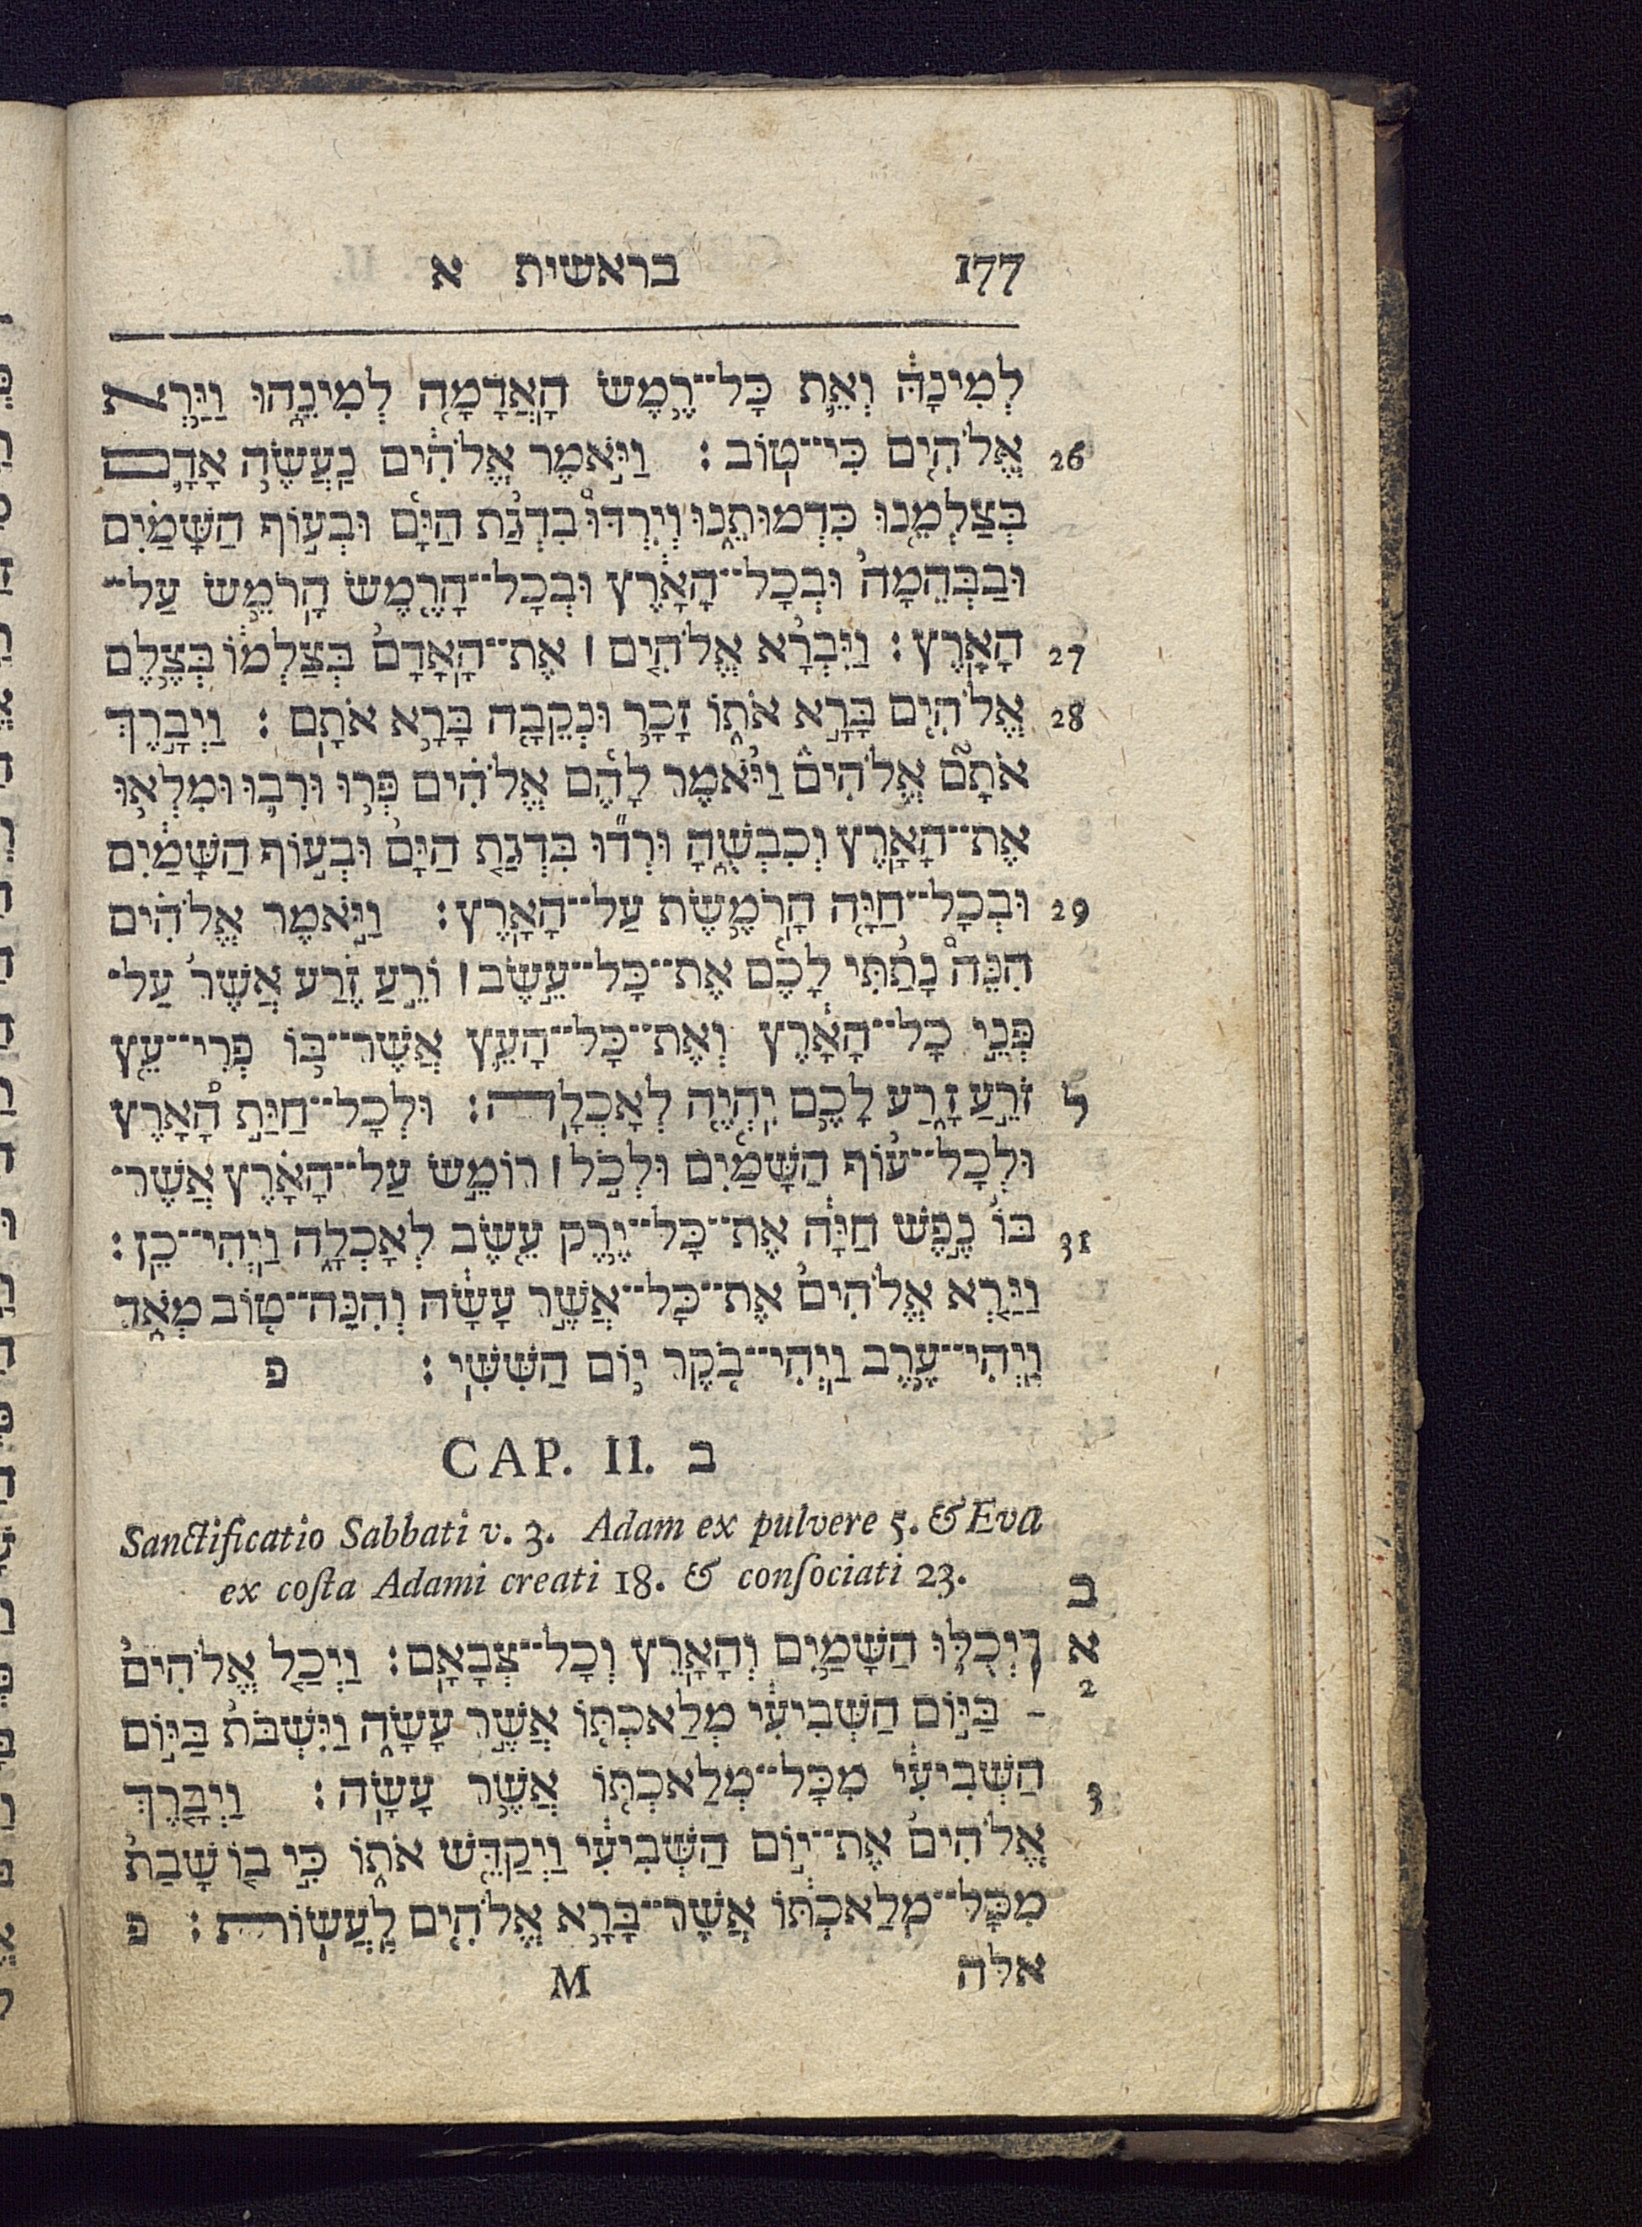 177 בראשית א
לְמִינָהּ וְאֵת כָּל־רֶמֶשׂ הָאֲדָמָה לְמִינֵהוּ וַיַּרְא
26 אֱלֹהִים כִּי־טוֹב׃ וַיֹּאמֶר אֱלֹהִים נַעֲשֶׂה אָדָם
בְּצַלְמֵנוּ כִּדְמוּתֵנוּ וְיִרְדּוּ בִדְגַת הַיָּם וּבְעוֹף הַשָּׁמַיִם
וּבַבְּהֵמָה וּבְכָל־הָאָרֶץ וּבְכָל־הָרֶמֶשׂ הָרֹמֵשׂ עַל־
27 הָאָרֶץ׃ וַיִּבְרָא אֱלֹהִים ׀ אֶת־הָאָדָם בְּצַלְמוֹ בְּצֶלֶם
28 אֱלֹהִים בָּרָא אֹתוֹ זָכָר וּנְקֵבָה בָּרָא אֹתָם׃ וַיְבָרֶךְ
אֹתָם אֱלֹהִים וַיֹּאמֶר לָהֶם אֱלֹהִים פְּרוּ וּרְבוּ וּמִלְאוּ
אֶת־הָאָרֶץ וְכִבְשֻׁהָ וּרְדוּ בִּדְגַת הַיָּם וּבְעוֹף הַשָּׁמַיִם
29 וּבְכָל־חַיָּה הָרֹמֶשֶׂת עַל־הָאָרֶץ׃ וַיֹּאמֶר אֱלֹהִים
הִנֵּה נָתַתִּי לָכֶם אֶת־כָּל־עֵשֶׂב ׀ זֹרֵעַ זֶרַע אֲשֶׁר עַל־
פְּנֵי כָל־הָאָרֶץ וְאֶת־כָּל־הָעֵץ אֲשֶׁר־בּוֹ פְרִי־עֵץ
ל זֹרֵעַ זָרַע לָכֶם יִהְיֶה לְאָכְלָה׃ וּלְכָל־חַיַּת הָאָרֶץ
וּלְכָל־עוֹף הַשָּׁמַיִם וּלְכֹל ׀ רוֹמֵשׂ עַל־הָאָרֶץ אֲשֶׁר־
31 בּוֹ נֶפֶשׁ חַיָּה אֶת־כָּל־יֶרֶק עֵשֶׂב לְאָכְלָה וַיְהִי־כֵן׃
וַיַּרְא אֱלֹהִים אֶת־כָּל־אֲשֶׁר עָשָׂה וְהִנֵּה־טוֹב מְאֹד
וַיְהִי־עֶרֶב וַיְהִי־בֹקֶר יוֹם הַשִּׁשִּׁי׃ פ
CAP. II. ב
Sanctificatio Sabbati v. 3. Adam ex pulvere 5. & Eva
ex coſta Adami creati 18. & conſociati 23.
ב
א וַיְכֻלּוּ הַשָּׁמַיִם וְהָאָרֶץ וְכָל־צְבָאָם׃ וַיְכַל אֱלֹהִים
2 בַּיּוֹם הַשְּׁבִיעִי מְלַאכְתּוֹ אֲשֶׁר עָשָׂה וַיִּשְׁבֹּת בַּיּוֹם
3 הַשְּׁבִיעִי מִכָּל־מְלַאכְתּוֹ אֲשֶׁר עָשָׂה׃ וַיְבָרֶךְ
אֱלֹהִים אֶת־יוֹם הַשְּׁבִיעִי וַיְקַדֵּשׁ אֹתוֹ כִּי בוֹ שָׁבַת
מִכָּל־מְלַאכְתּוֹ אֲשֶׁר־בָּרָא אֱלֹהִים לַעֲשׂוֹת׃ פ
M אלה